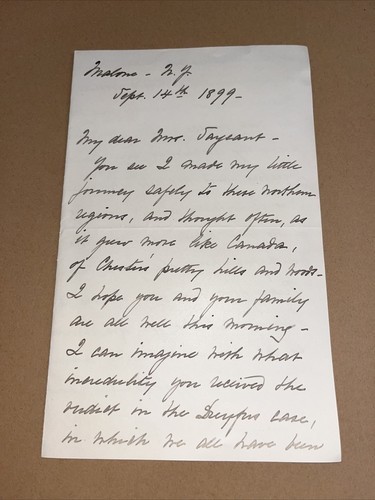 Malone - N.Y.
Sept. 14th 1899 -
My dear Mrs. Sargeant -
You see I made my little
journey safely to these northern
regions, and thought often, as
it grew more like Canada,
of Chester's pretty hills and woods -
I hope you and your family
are all well this morning -
I can imagine with what
incredulity you received the
verdict in the Dreyfus case,
in which we all have been